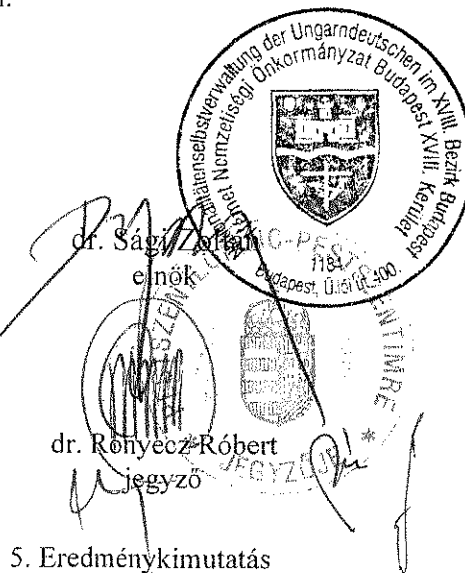 Nationalitätenselbstverwaltung der Ungarndeutschen im XVIII. Bezirk Budapest
Német Nemzetiségi Önkormányzat Budapest XVIII. Kerület
1184
Budapest, Üllői út 400.
dr. Sági Zoltán
elnök
JEGYZŐJE *
dr. Rónyecz Róbert
jegyző
5. Eredménykimutatás